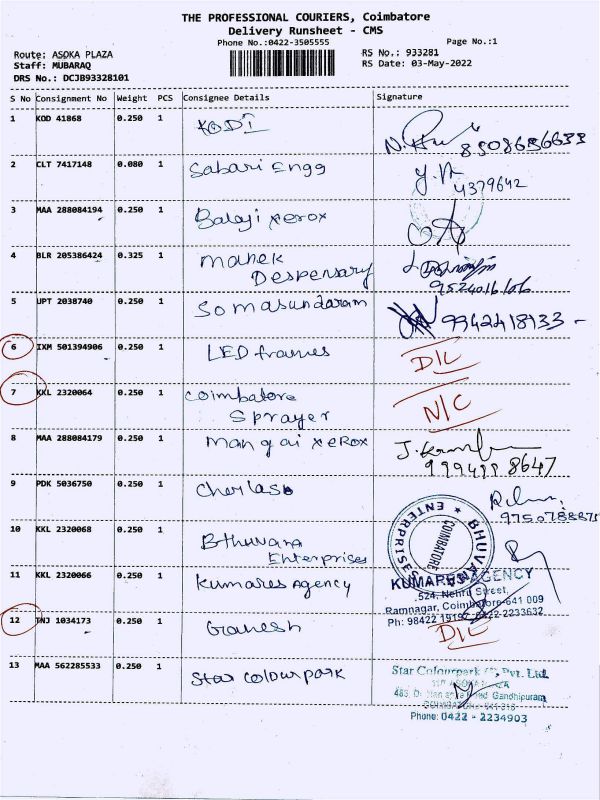 THE PROFESSIONAL COURIERS, Coimbatore
Delivery Runsheet - CMS
Phone No.:0422-3505555
Page No.:1
Route: ASOKA PLAZA
RS No.: 933281
Staff: MUBARAQ
RS Date: 03-May-2022
DRS No.: DCJB93328101
S No Consignment No Weight PCS Consignee Details Signature
1 KOD 41868 0.250 1 KODI
8508636633
2 CLT 7417148 0.080 1 Sabari Engg
4379642
3 MAA 288084194 0.250 1 Balaji xerox
4 BLR 205386424 0.325 1 Manek
Despensary
9524016106
5 UPT 2038740 0.250 1 Somasundaram 9942418133
6 IXM 501394906 0.250 1 LED frames D/L
7 KKL 2320064 0.250 1 Coimbatore
Sprayer N/C
8 MAA 288084179 0.250 1 Mangai xerox
9994998647
9 PDK 5036750 0.250 1 Cherlas
9750788875
10 KKL 2320068 0.250 1 Bthuvana
Enterprises
BHUVANA ENTERPRISES
COIMBATORE
11 KKL 2320066 0.250 1 Kumares Agency
KUMARES AGENCY
524, Nehru Street,
Ramnagar, Coimbatore-641 009
Ph: 98422 19197 0422-2233632
12 TNJ 1034173 0.250 1 Ganesh D/L
13 MAA 562285533 0.250 1 Star colourpark
Star Colourpark Pvt. Ltd.
Gandhipuram
Phone: 0422 - 2234903